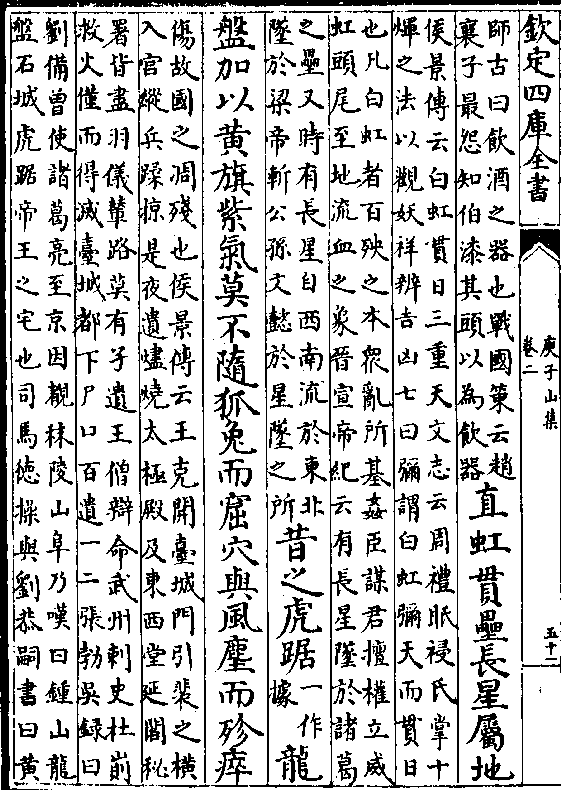 欽定四庫全書
庾子山集
卷二
五十二
師古曰飲酒之器也戰國策云趙
襄子最怨知伯漆其頭以為飲器
直虹貫壘長星屬地
侯景傳云白虹貫日三重天文志云周禮眂祲氏掌十
煇之法以觀妖祥辨吉凶七曰彌謂白虹彌天而貫日
也凡白虹者百殃之本衆亂所基姦臣謀君擅權立威
虹頭尾至地流血之象晉宣帝紀云有長星墜於諸葛
之壘又時有長星自西南流於東北
墜於梁帝斬公孫文懿於星墜之所
昔之虎踞
一作
據
龍
盤加以黄旗紫氣莫不隨狐兔而窟穴與風塵而殄瘁
傷故國之凋殘也侯景傳云王克開臺城門引裴之横
入宮縱兵蹂掠是夜遺燼燒太極殿及東西堂延閣秘
署皆盡羽儀輦路莫有孑遺王僧辯命武州刺史杜崱
救火僅而得滅臺城都下户口百遺一二張勃吳録曰
劉備曾使諸葛亮至京因觀秣陵山阜乃嘆曰鍾山龍
盤石城虎踞帝王之宅也司馬德操與劉恭嗣書曰黄